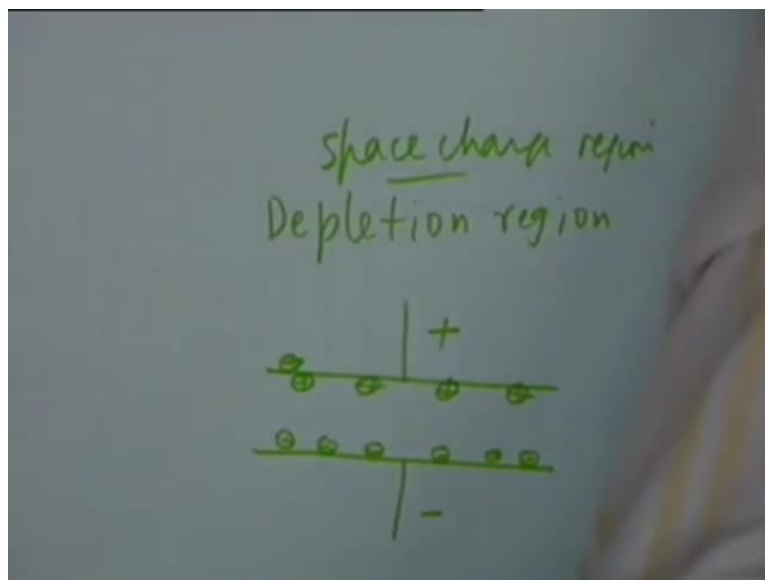 space charge region
Depletion region
+
-